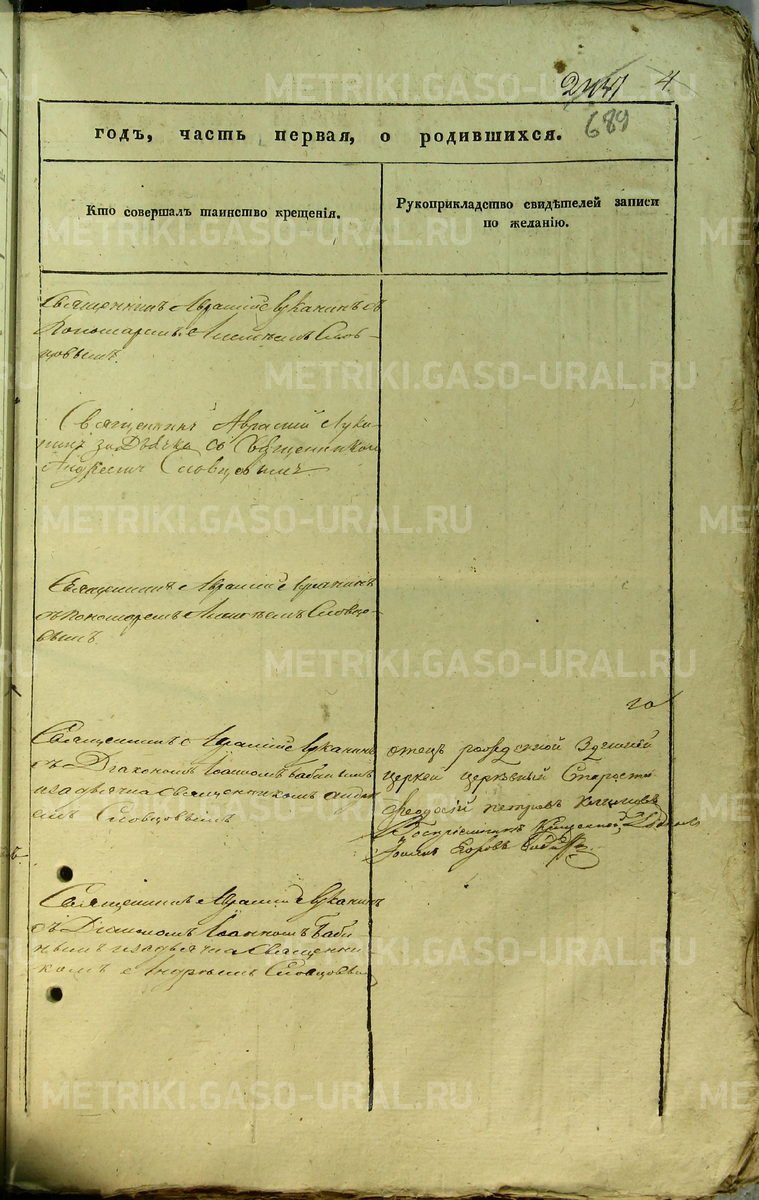 4
689
годъ, часть первая, о родившихся.
Кто совершалъ таинство крещенія.
Рукоприкладство свидѣтелей записи
по желанію.
Священникъ Аврамій Луканинъ съ
Пономаремъ Алексѣемъ Слов-
цовымъ.
Священникъ Аврамий Лука-
нинъ за Дьячка со Священником
Андреемъ Словцовымъ
Священникъ Аврамій Луканинъ
съ пономаремъ Словцо-
вымъ.
Священникъ Аврамій Луканинъ
съ Діакономъ Іоанномъ Бабинымъ
и за дьячка Священникомъ Андре-
емъ Словцовымъ
го
отецъ рожденной Здешней
церкви церковный Староста
Феодосій петровъ
Воспріемникъ
Егоровъ
Священникъ Аврамій Луканинъ
съ Діакономъ Іоанномъ Баби-
нымъ и за дьячка Священни-
комъ Андреемъ Словцовым
METRIKI.GASO-URAL.RU